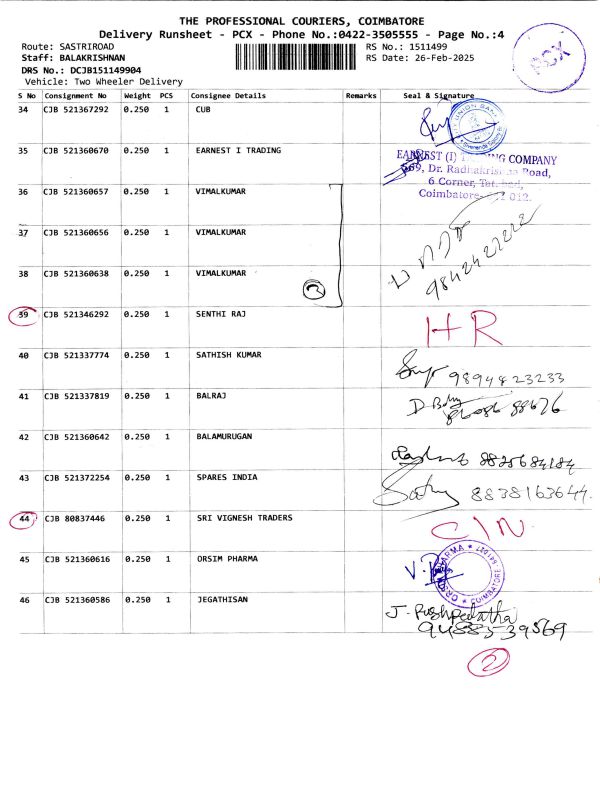 THE PROFESSIONAL COURIERS, COIMBATORE
Delivery Runsheet - PCX - Phone No.:0422-3505555 - Page No.:4
Route: SASTRIROAD RS No.: 1511499
Staff: BALAKRISHNAN RS Date: 26-Feb-2025
DRS No.: DCJB151149904
Vehicle: Two Wheeler Delivery
PCX
S No Consignment No Weight PCS Consignee Details Remarks Seal & Signature
34 CJB 521367292 0.250 1 CUB
UNION BANK
35 CJB 521360670 0.250 1 EARNEST I TRADING
EARNEST (I) TRADING COMPANY
Dr. Radhakrishna Road,
6 Corner,
Coimbatore
36 CJB 521360657 0.250 1 VIMALKUMAR
37 CJB 521360656 0.250 1 VIMALKUMAR
38 CJB 521360638 0.250 1 VIMALKUMAR
3
39 CJB 521346292 0.250 1 SENTHI RAJ HR
40 CJB 521337774 0.250 1 SATHISH KUMAR 9894823233
41 CJB 521337819 0.250 1 BALRAJ
42 CJB 521360642 0.250 1 BALAMURUGAN
43 CJB 521372254 0.250 1 SPARES INDIA 8838163644
44 CJB 80837446 0.250 1 SRI VIGNESH TRADERS C/N
45 CJB 521360616 0.250 1 ORSIM PHARMA
PHARMA COIMBATORE
46 CJB 521360586 0.250 1 JEGATHISAN J. Pushpalatha
9488539569
2